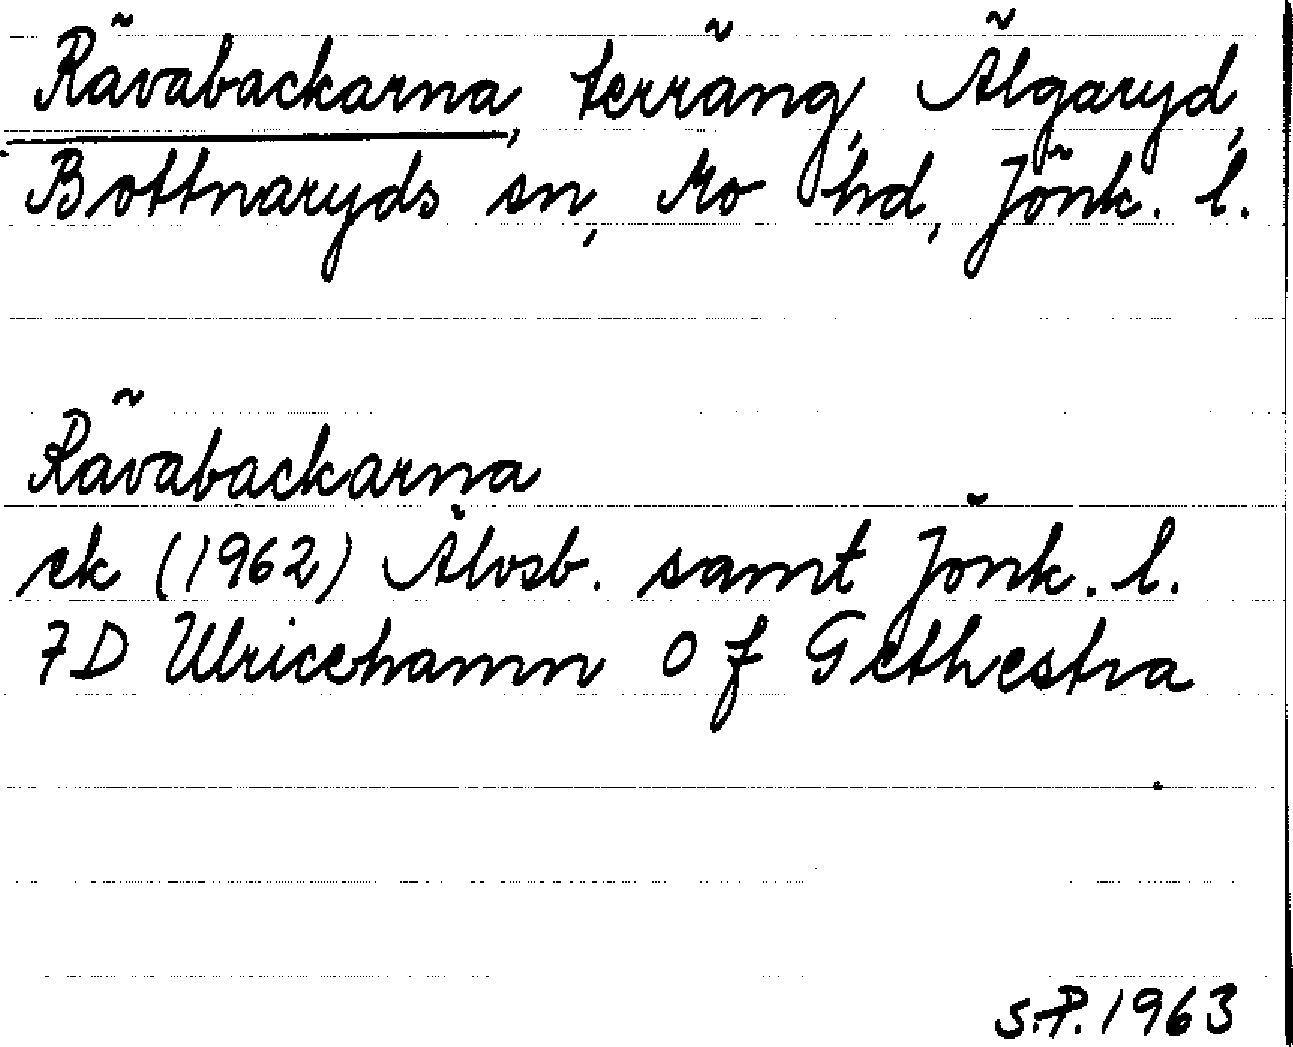 Rävabackarna, terräng, Älgaryd,
Bottnaryds sn, Mo hd, Jönk. l.
Rävabackarna
ek (1962) Älvsb. samt Jönk. l.
7D Ulricehamn 0 f Gethestra
S.P. 1963